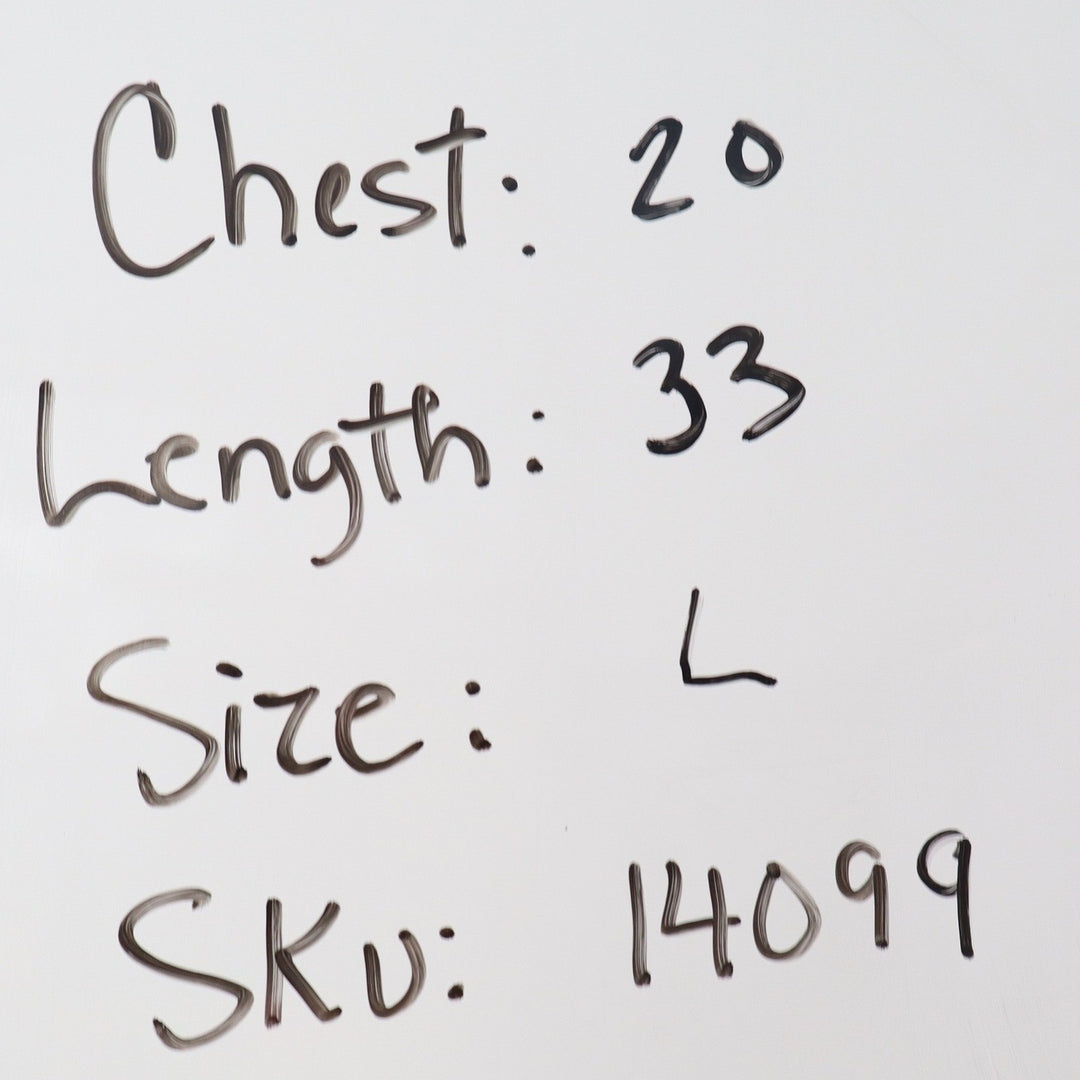 Chest: 20
Length: 33
Size: L
SKU: 14099